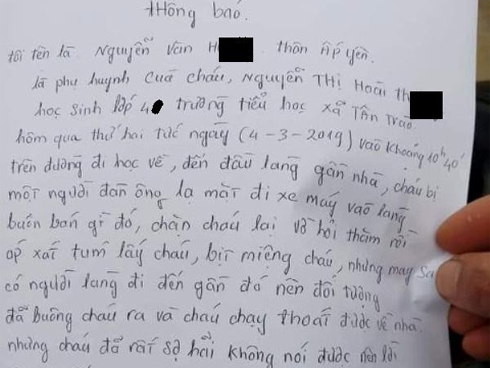 thông báo.
tôi tên là Nguyễn Văn H thôn Ấp Yên.
là phụ huynh cuả cháu, Nguyễn Thị Hoài th
học sinh lớp 4 trường tiểu học xã Tân Trào.
hôm qua thứ hai tức ngày (4-3-2019) vào khoảng 10h40'
trên đường đi học về, đến đầu làng gần nhà, cháu bị
một người đàn ông lạ mặt đi xe máy vào làng
buôn bán gì đó, chặn cháu lại vờ hỏi thăm rồi
áp xát tum lấy cháu, bịt miệng cháu, nhưng may sa
có người làng đi đến gần đó nên đối tượng
đã buông cháu ra và cháu chạy thoát được về nhà.
nhưng cháu đã rất sợ hãi không nói được nên lời